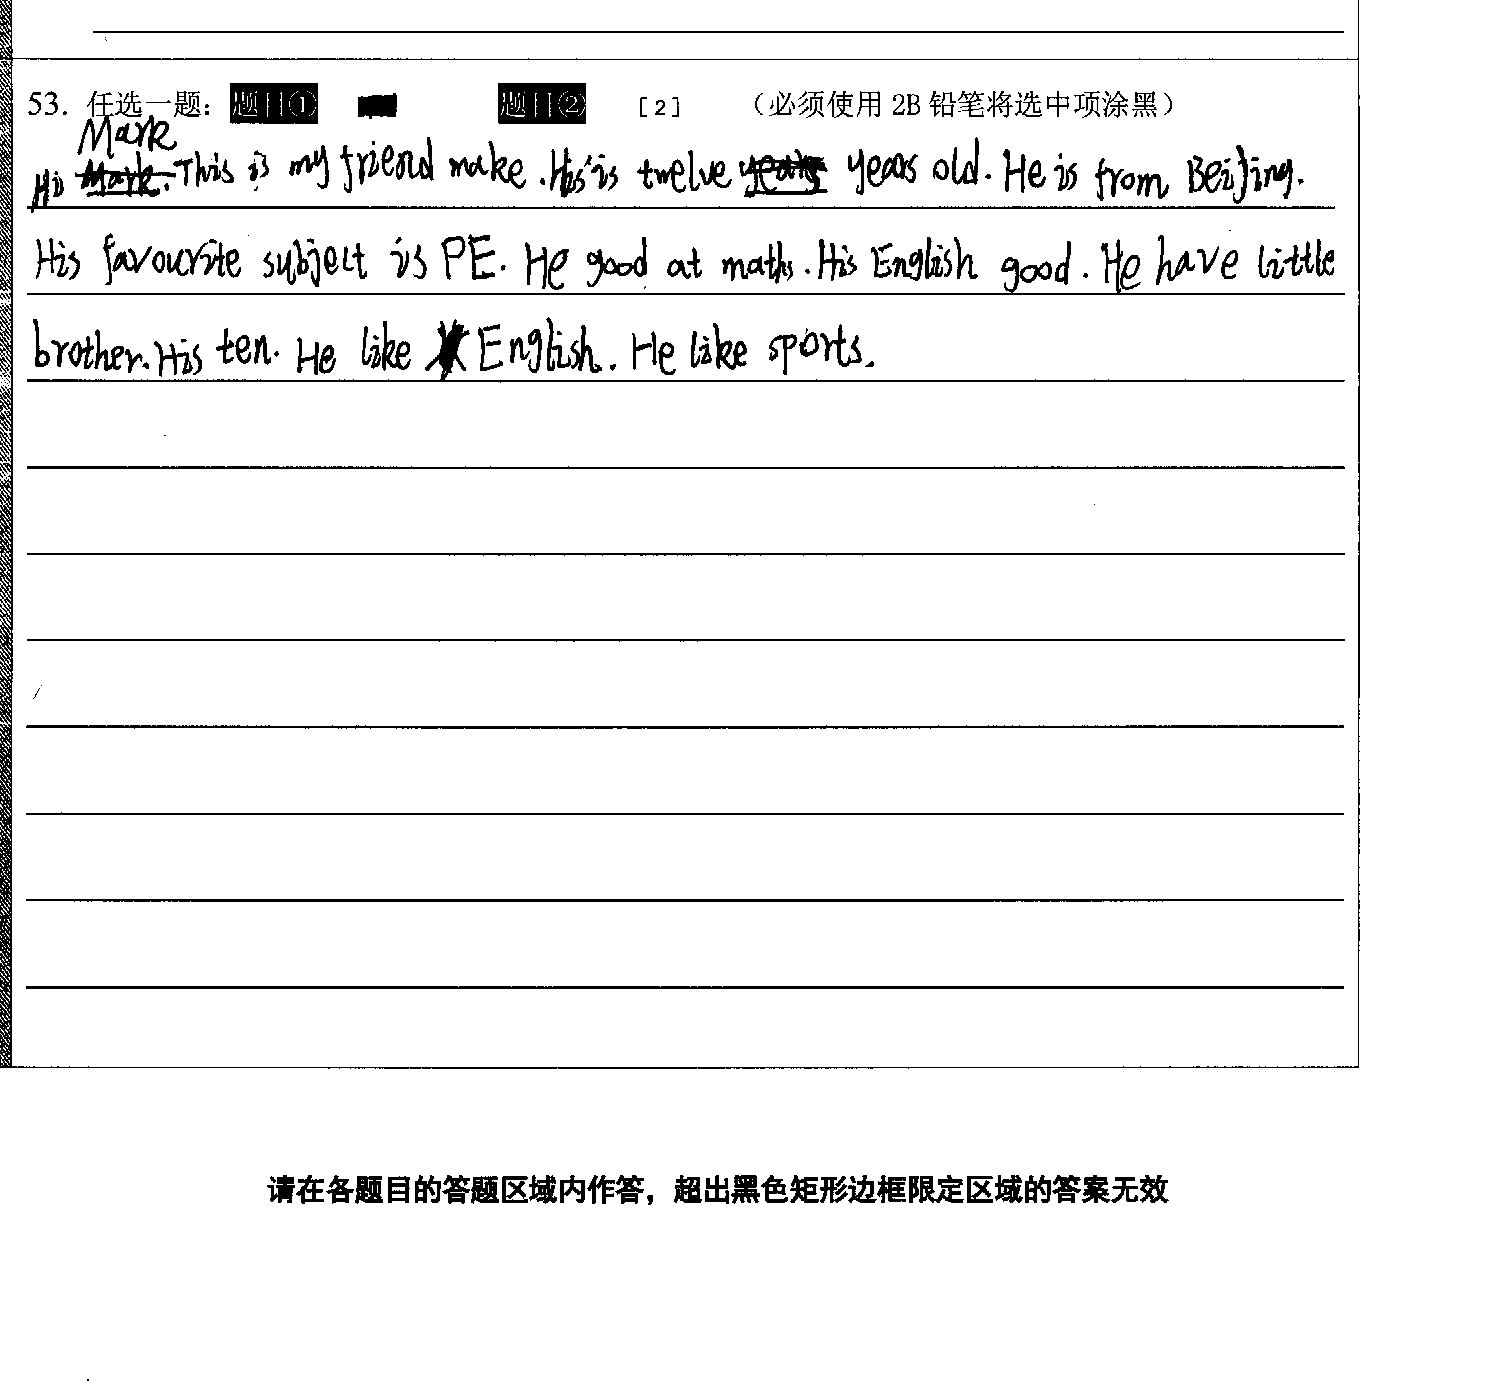 53. 任选一题： 题目① 题目② [2] （必须使用 2B 铅笔将选中项涂黑）
Mark
Hi This is my friend make. His is twelve years old. He is from BeiJing.
His favourite subject is PE. He good at maths. His English good. He have little
brother. His ten. He like English. He like sports.
请在各题目的答题区域内作答，超出黑色矩形边框限定区域的答案无效